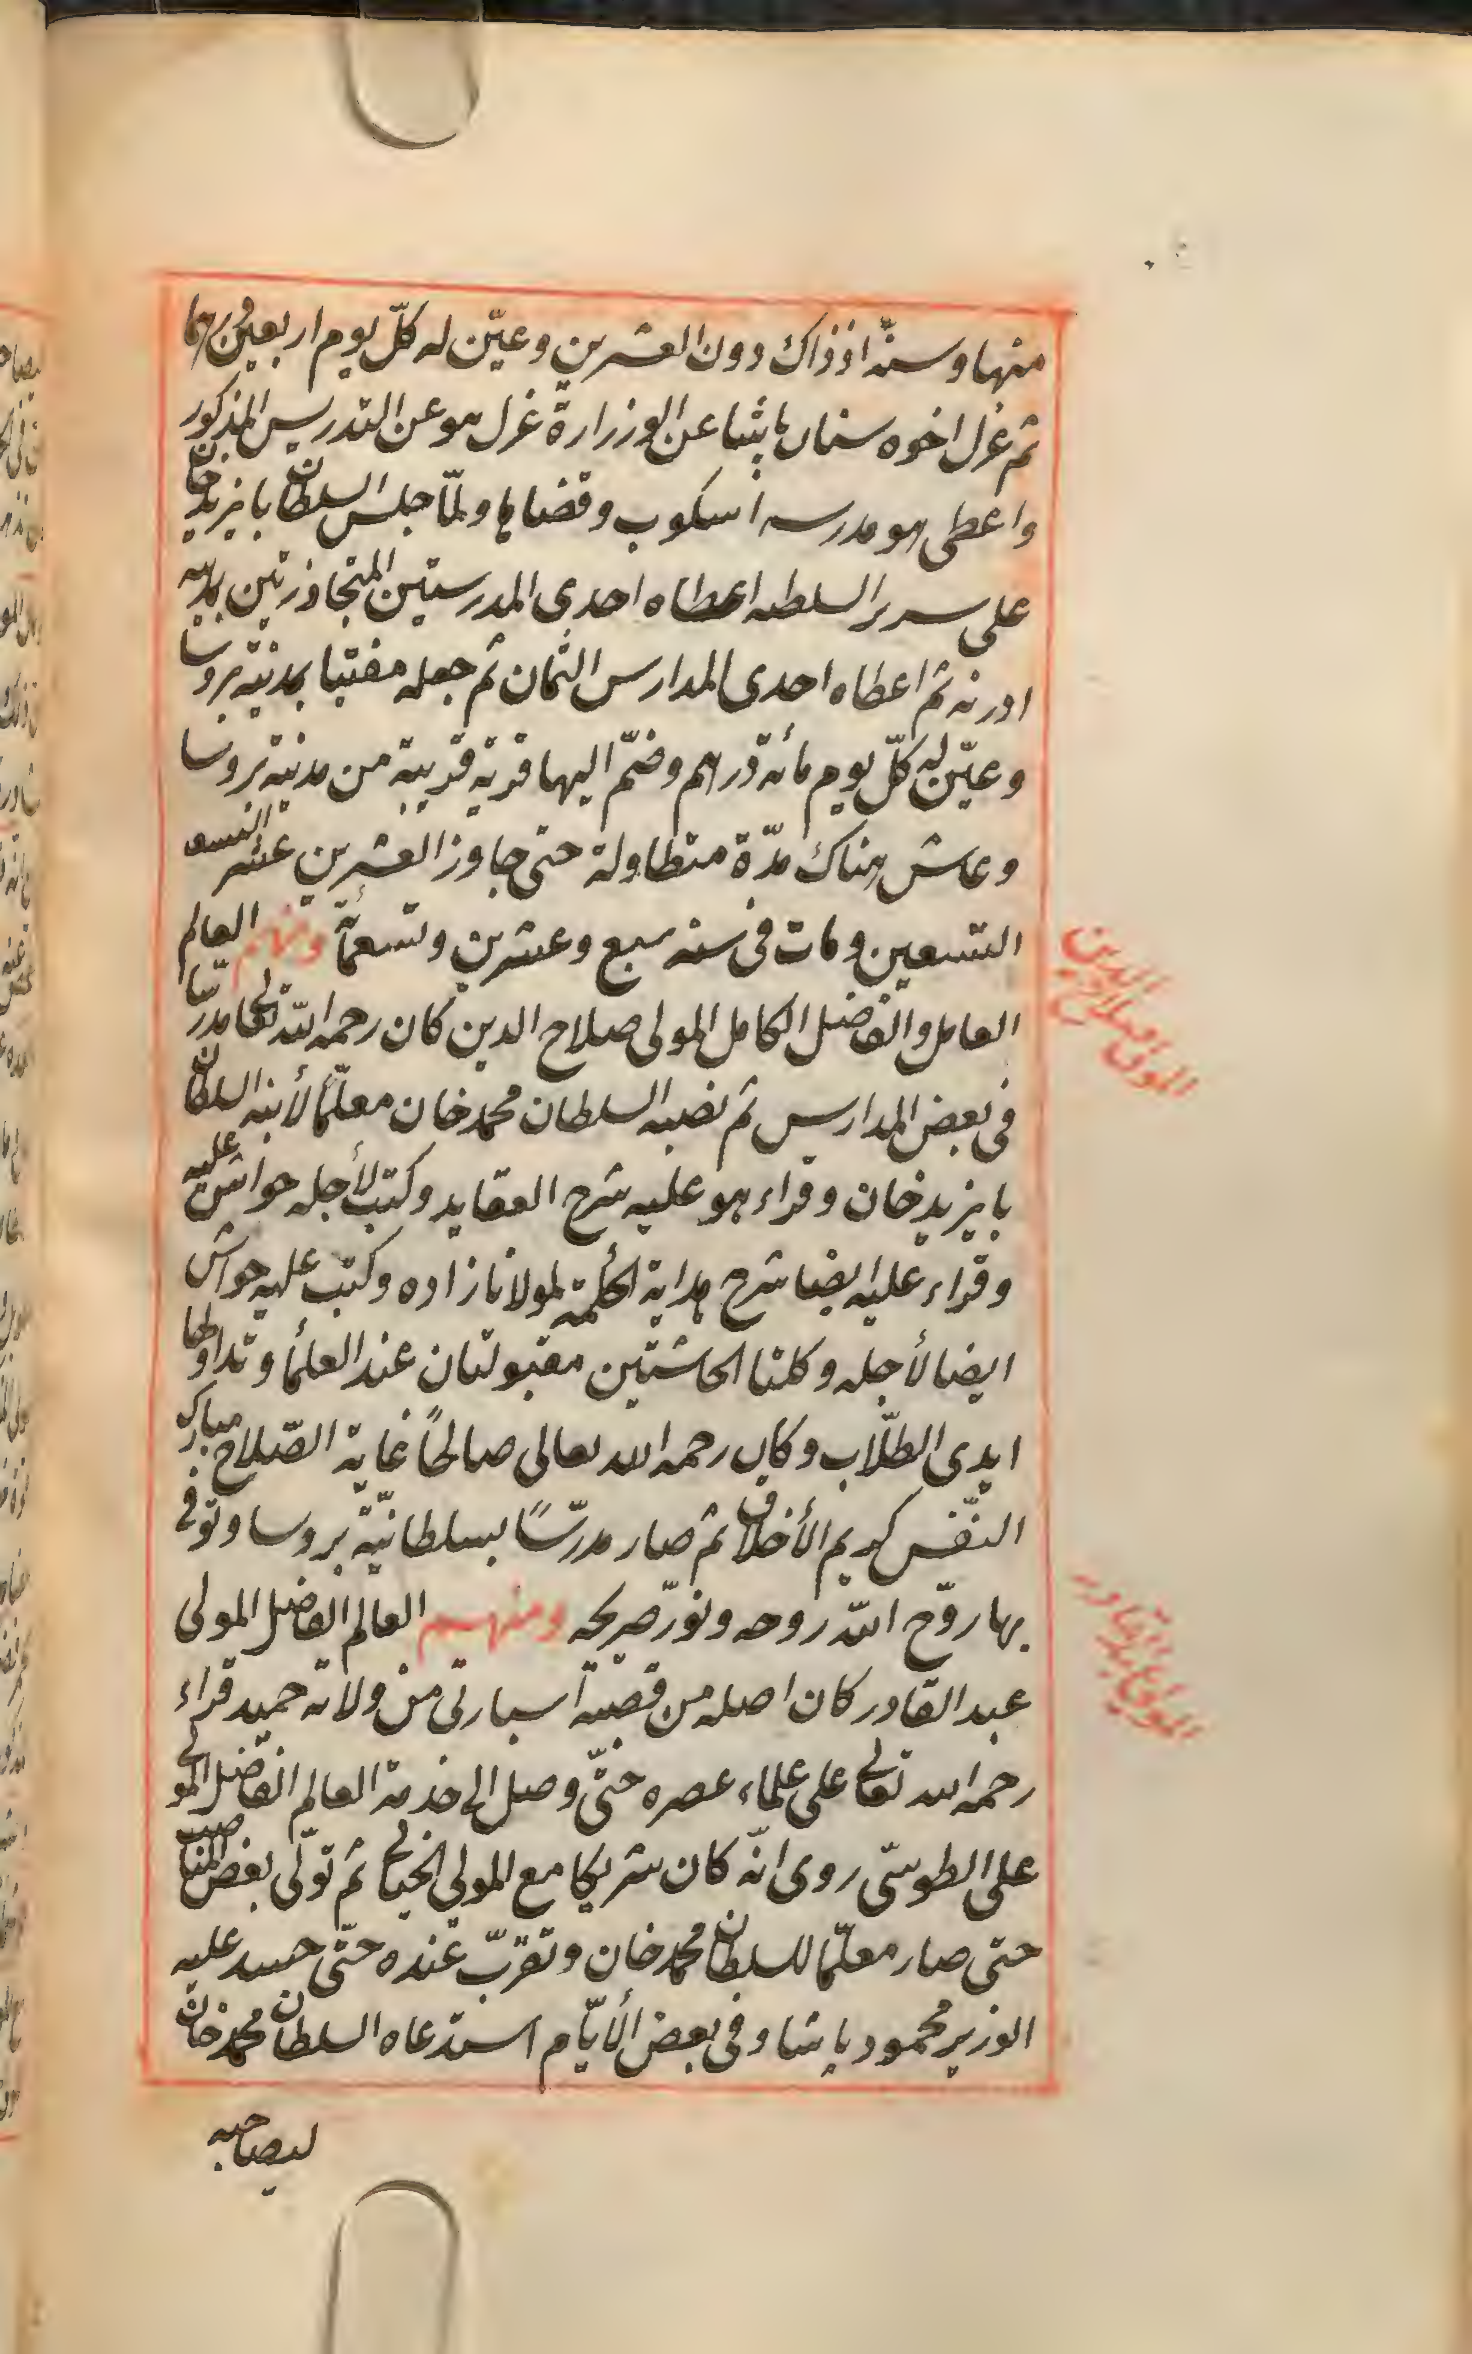 منها وسنّه اذذاك دون العشرين وعيّن له كلّ يوم اربعين درهما
ثم عزل اخوه سنان باشا عن الوزرارة عزل هو عن التدريس المذكور
واعطى هو مدرسه اسكوب وقضاها ولمّا جلس السلطان بايزيد خان
على سرير السلطنه اعطاه احدى المدرستين المتجاوزرتين بمدينه
ادرنه ثم اعطاه احدى المدارس الثمان ثم جعله مفتيا بمدينة بروسا
وعيّن له كلّ يوم مائة درهم وضمّ اليها قرية قريبة من مدينة بروسا
وعاش هناك مدّة متطاولة حتى جاوز العشرين عشر
التسعين ومات فى سنه سبع وعشرين وتسعمائة ومنهم العالم
العامل والفاضل الكامل المولى صلاح الدين كان رحمه الله تعالى مدرسّا
فى بعض المدارس ثم نصبه السلطان محمد خان معلّمًا لأبنه السلطان
بايزيد خان وقراء هو عليه شرح العقايد وكتب لأجله حواشى عليه
وقراء عليه ايضا شرح هداية الحكمة لمولانا زاده وكتب عليه حواش
ايضا لأجله وكلتا الحاشتين مقبولتان عند العلمأ وتداولها
ايدى الطلّاب وكان رحمه الله تعالى صالحًا غاية الصّلاح مبارك
النّفس كريم الأخلاق ثم صار مدرّسًا بسلطانيّة بروسا وتوفى
بها روّح الله روحه ونوّر ضريحه ومنهم العالم الفاضل المولى
عبد القادر كان اصله من قصبة اسبارتى من ولاته حميد قراء
رحمه الله تعالى على علماء عصره حتّى وصل الى خدمة العالم الفاضل المولى
على الطوسّى روى انّه كان شريكا مع المولى الخيالى ثم تولّى بعض المناصب
حتى صار معلّما للسلطان محمد خان وتقرّب عنده حتّى حسد عليه
الوزير محمود باشا وفى بعض الأيّام استدعاه السلطان محمد خان
ليصاحبه
المولى صلاح الدين
المولى عبد القادر